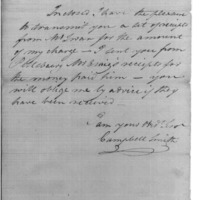 Inclosed I have the pleasure
to transmit you a set receipts
from Mr for the amount
of my charge I sent you from
receipts for
the money paid him you
will oblige me by advice if they
have been received
I am yours
Campbell Smith